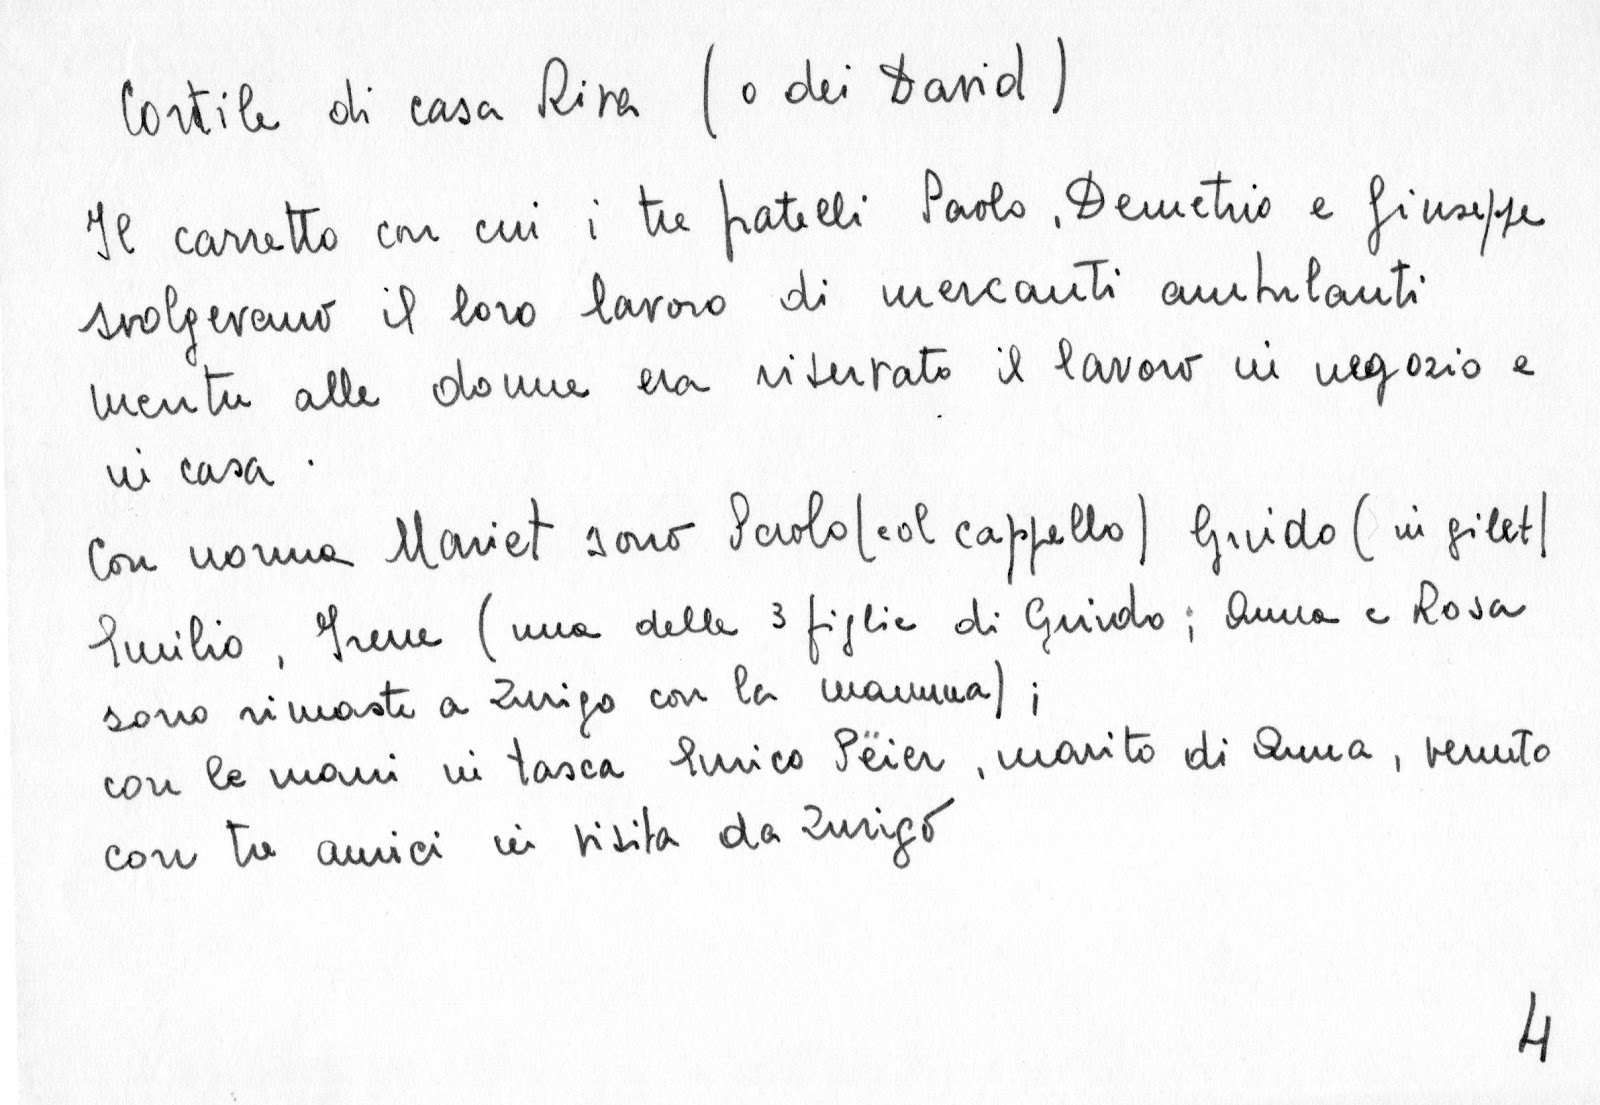 Cortile di casa Riva (o dei David)
Il carretto con cui i tre fratelli Paolo, Demetrio e Giuseppe
svolgevano il loro lavoro di mercanti ambulanti
mentre alle donne era riservato il lavoro in negozio e
in casa.
Con nonna Mariet sono Paolo (col cappello) Guido (in gilet)
Emilio, Irene (una delle 3 figlie di Guido; Anna e Rosa
sono rimaste a Zurigo con la mamma);
con le mani in tasca Enrico Pëier, marito di Anna, venuto
con tre amici in visita da Zurigo
4